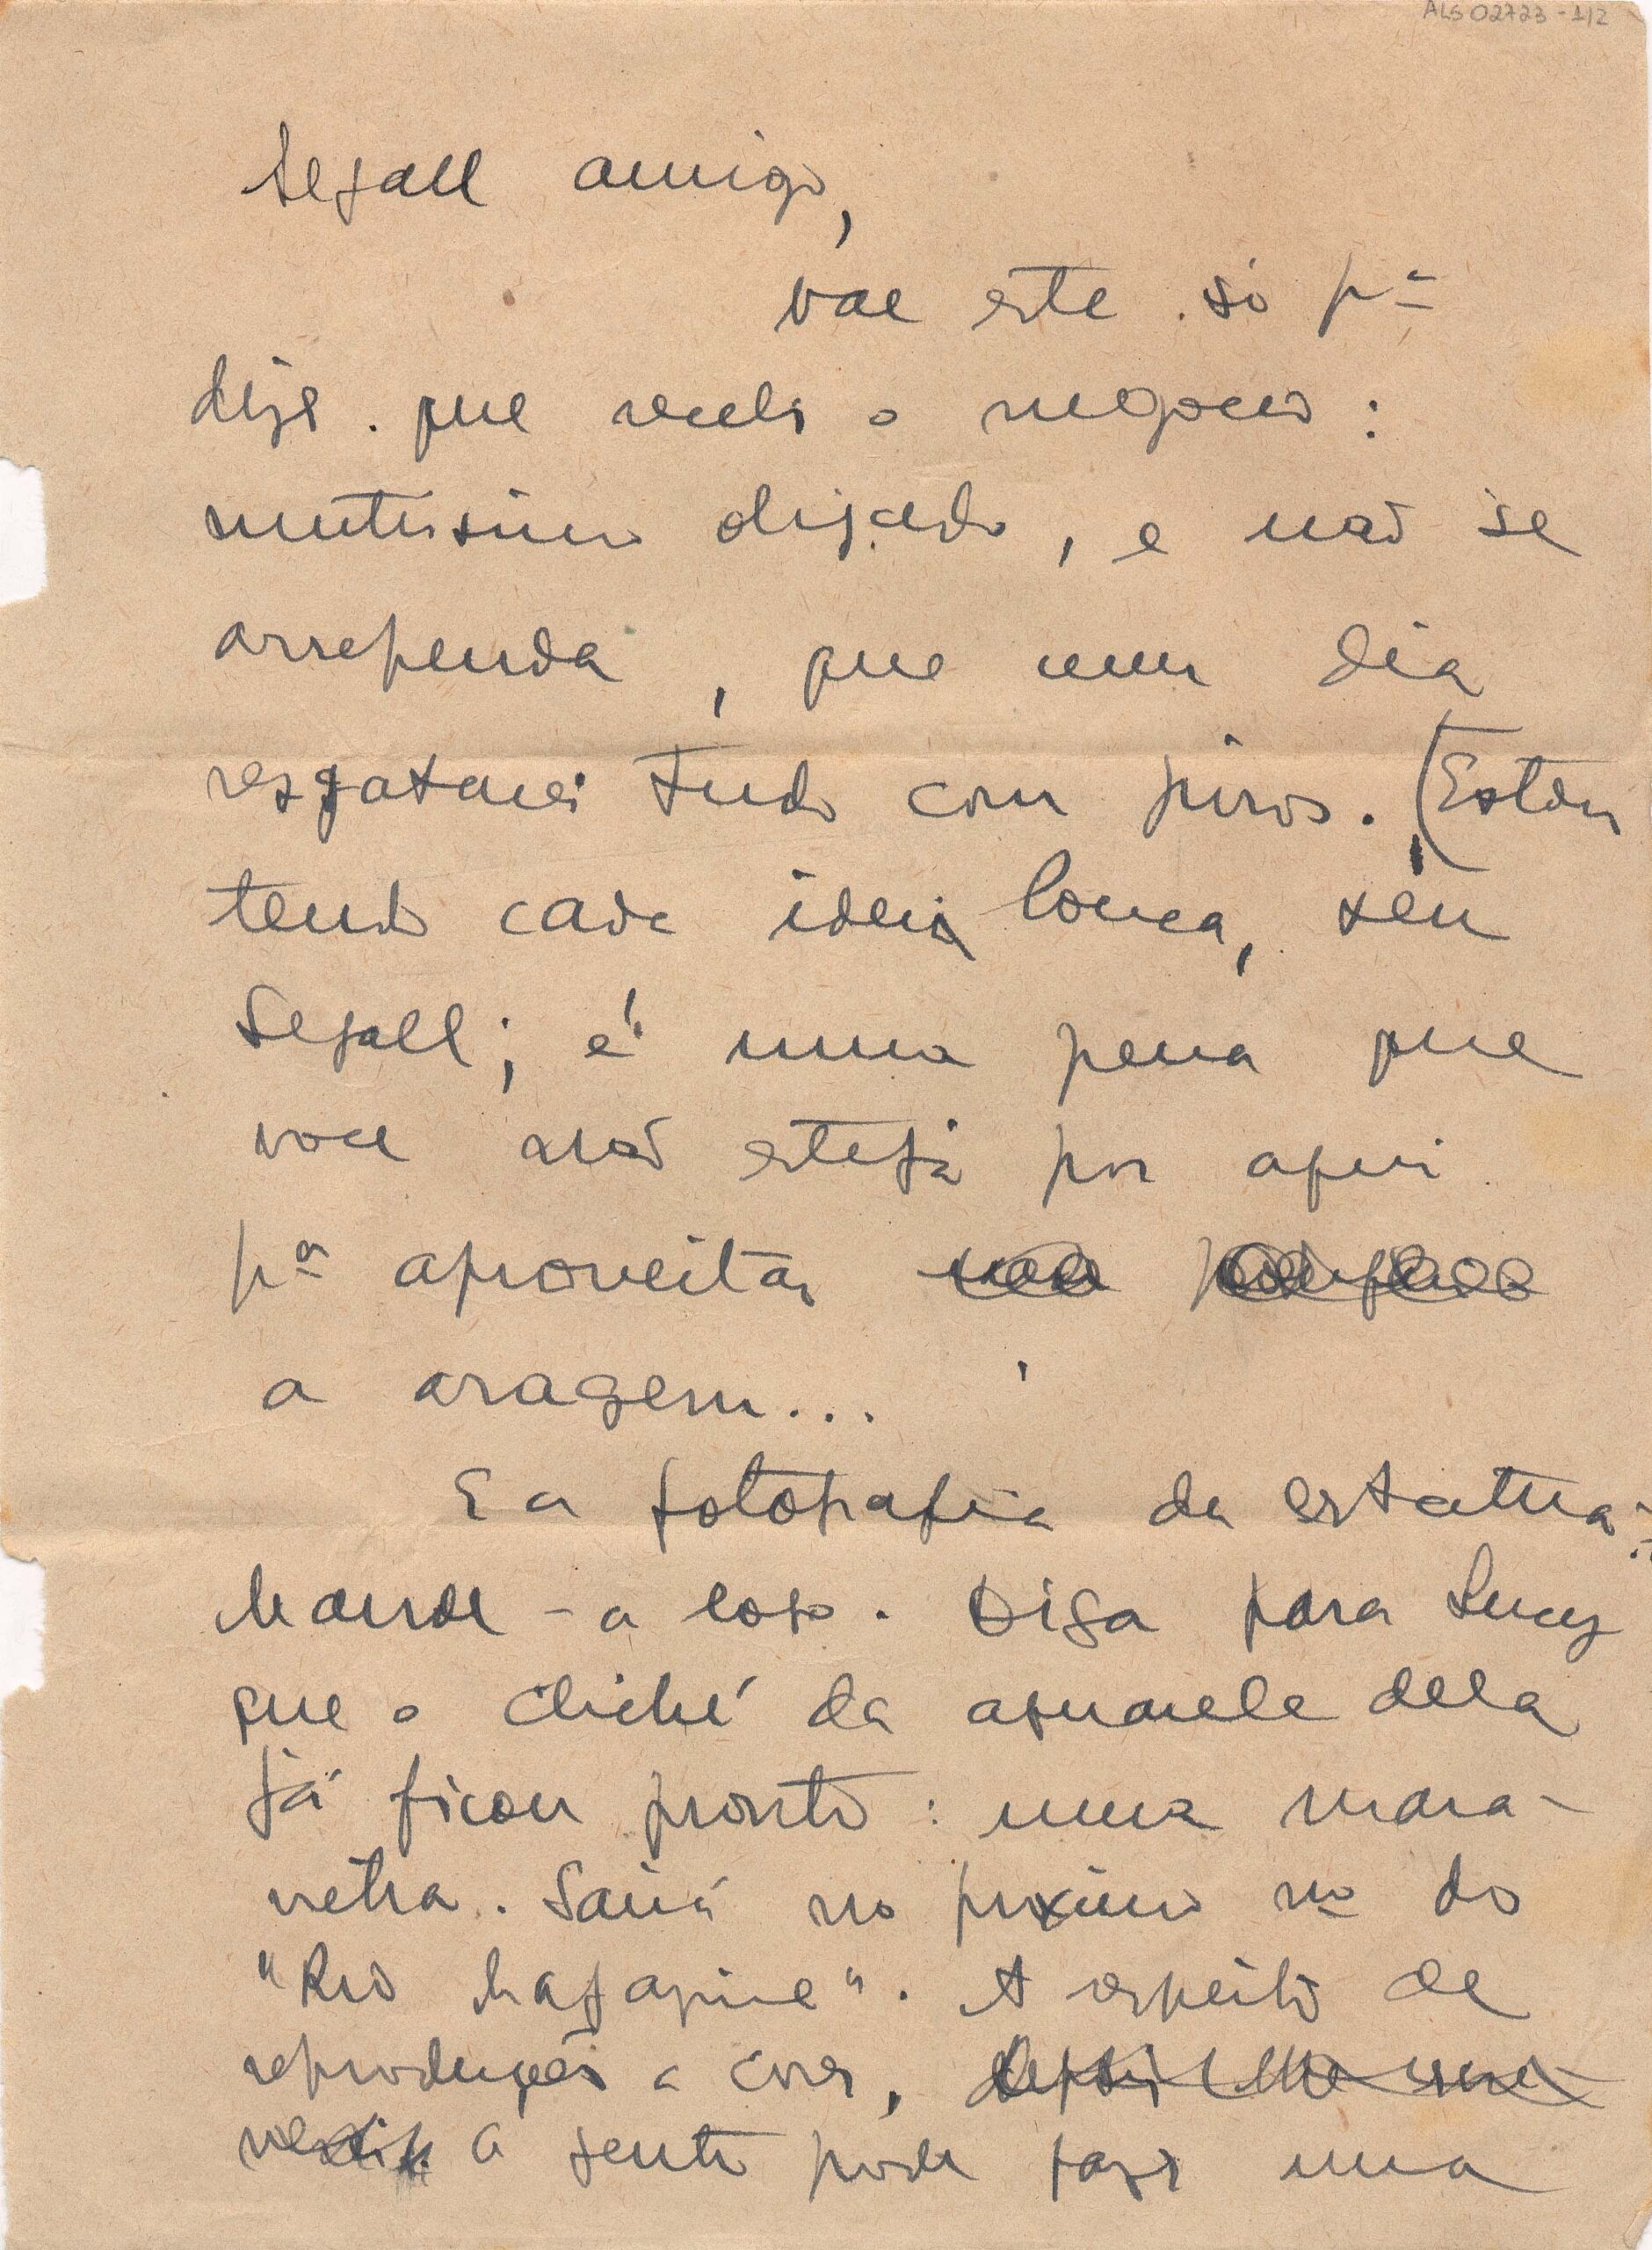 ALS 02723-1/2
Segall amigo,
vae este só pª
dizer que recebi o negocio:
muitissimo obrigado, e não se
arrependa, que um dia
resgatarei tudo com juros. (Estou
tendo cada ideia louca, seu
Segall; é uma pena que
voce não esteja por aqui
pª aproveitar
a aragem...
E a fotografia da estatua?
Mande-a logo. Diga para Lucy
que o cliché da aquarela dela
já ficou pronto: uma mara-
vilha. Sairá no proximo nº do
"Rio Magazine". A respeito de
reproduções a cores,
a gente pode fazer uma